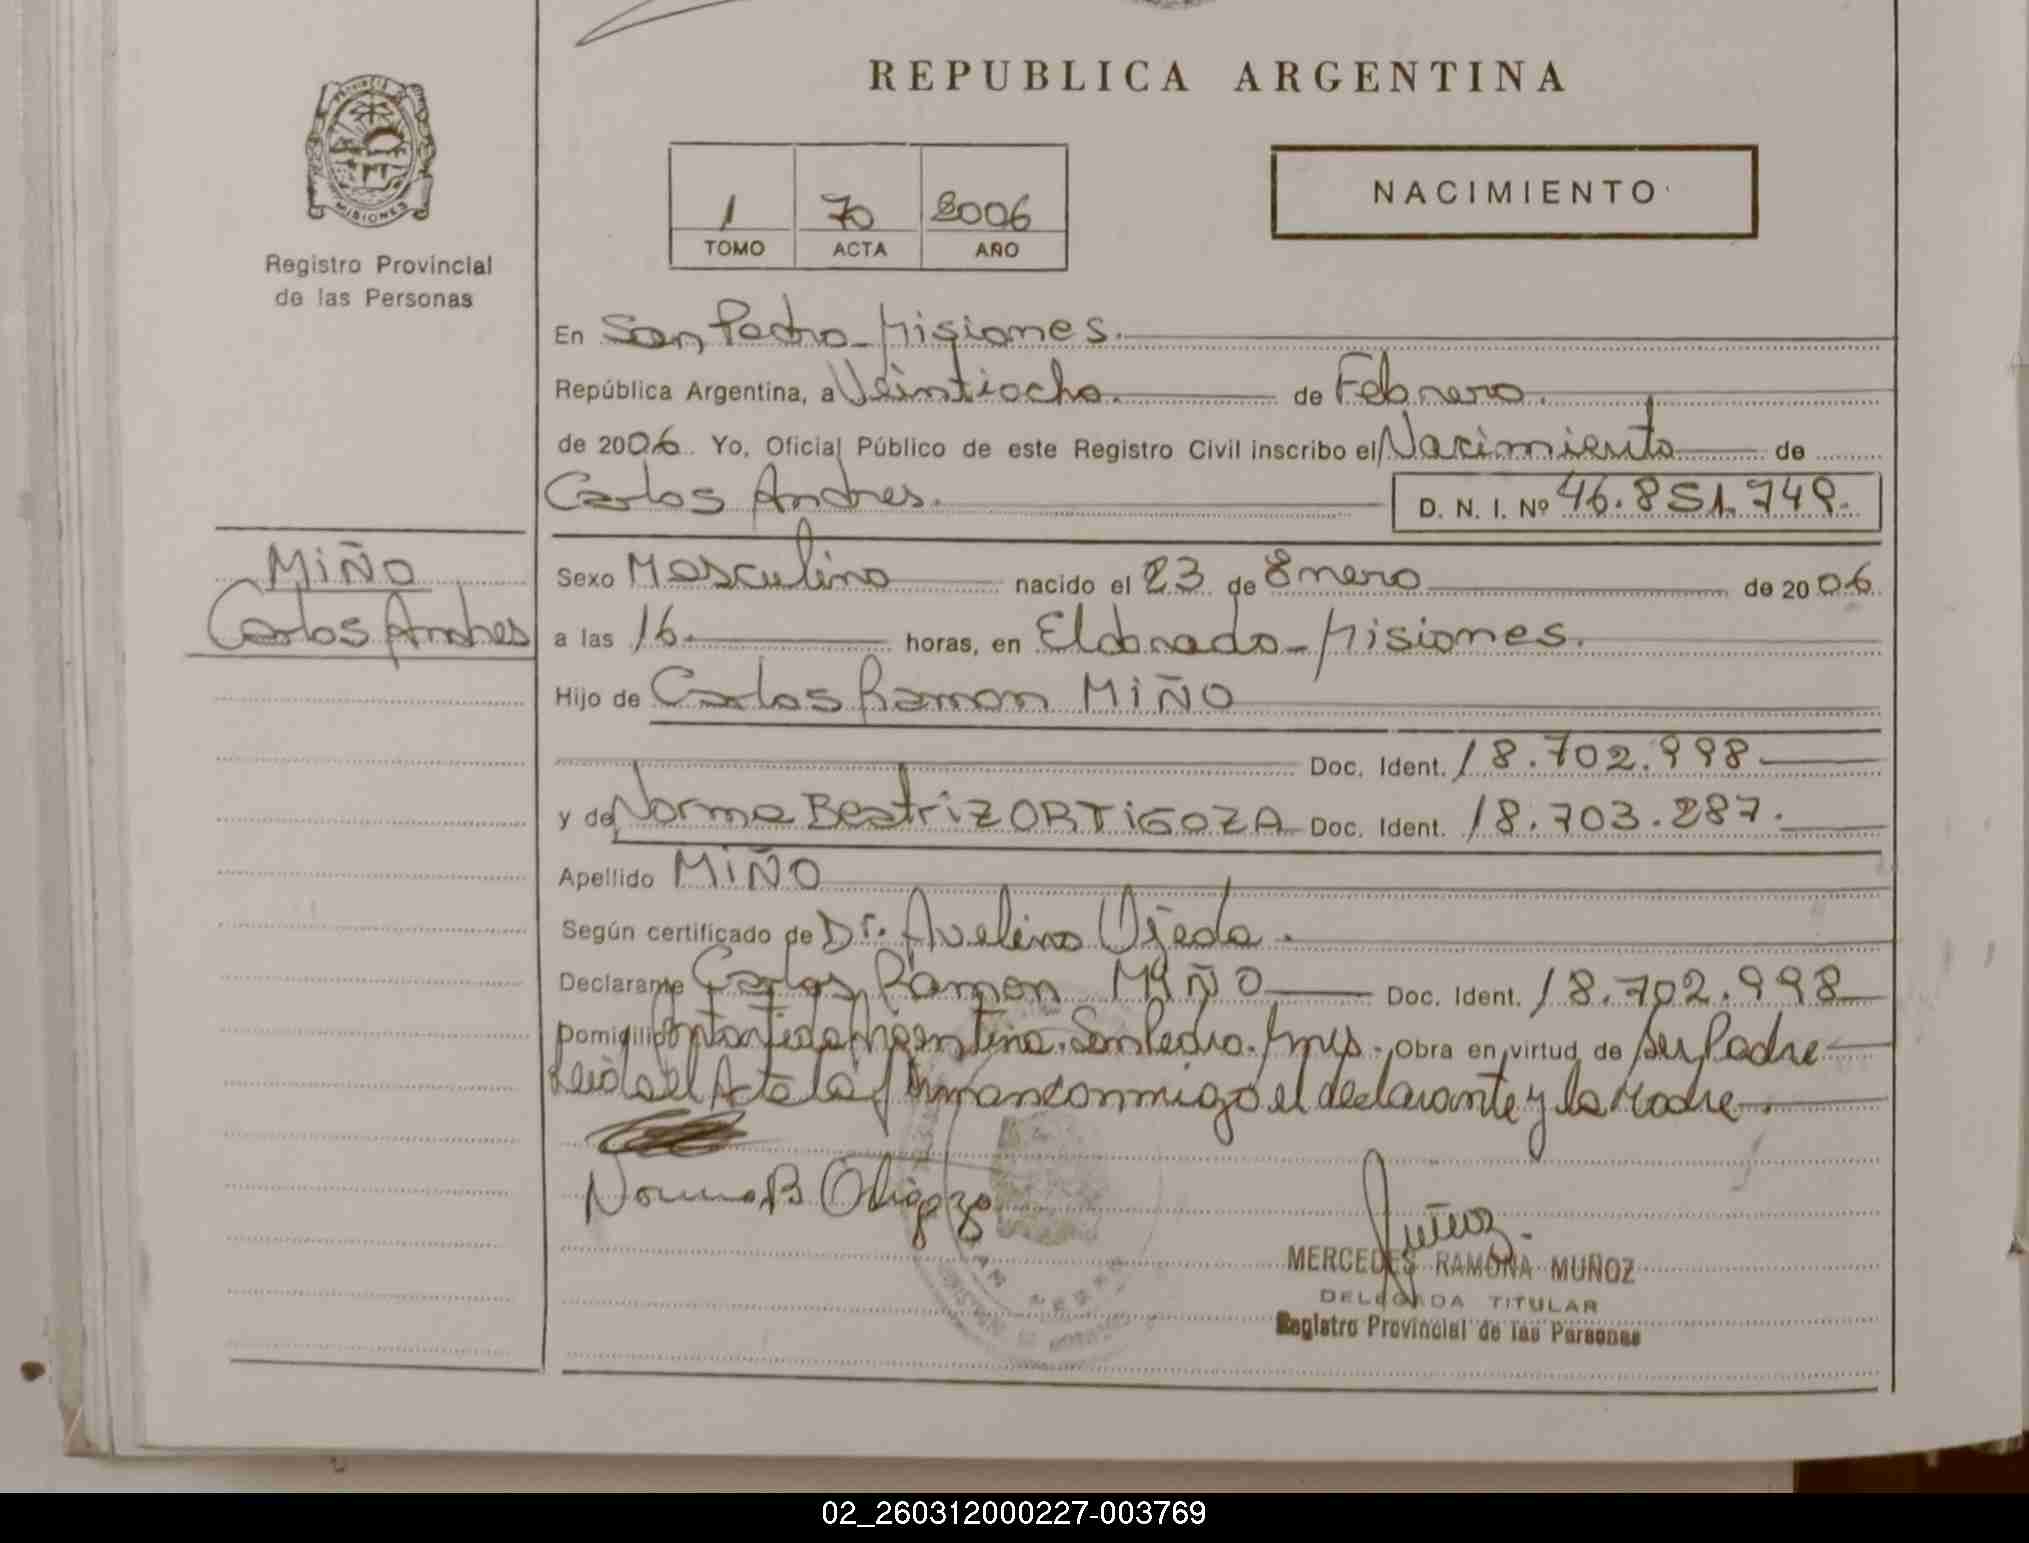 REPUBLICA ARGENTINA
PROVINCIA
MISIONES
Registro Provincial
de las Personas
1 70 2006
TOMO ACTA AÑO
NACIMIENTO
En San Pedro - Misiones.
República Argentina, a Veintiocho. de Febrero.
de 2006. Yo, Oficial Público de este Registro Civil inscribo el Nacimiento de
Carlos Andres. D. N. I. Nº 46.851.749.
MIÑO
Carlos Andres
Sexo Masculino nacido el 23 de Enero de 2006
a las 16 horas, en Eldorado - Misiones.
Hijo de Carlos Ramon MIÑO
Doc. Ident. 18.702.998
y de Norma Beatriz ORTIGOZA Doc. Ident. 18.703.287.
Apellido MIÑO
Según certificado de Dr. Avelino Ojeda.
Declarante Carlos Ramon MIÑO Doc. Ident. 18.702.998
Domicilio Argentina. San Pedro. Mnes. Obra en virtud de ser Padre
Leida el Acta la firman conmigo el declarante y la Madre.
Norma B Ortigoza
Muñoz.
MERCEDES RAMONA MUÑOZ
DELEGADA TITULAR
Registro Provincial de las Personas
02_260312000227-003769